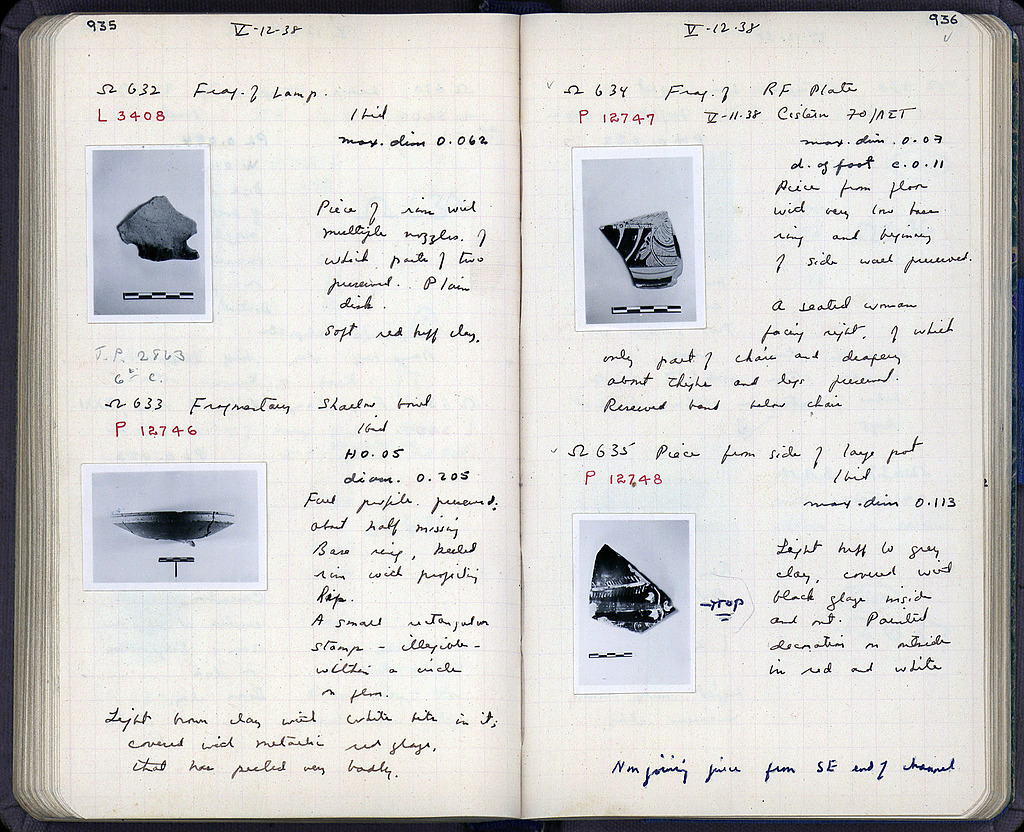 935
V-12-38
Ω 632 Frag. of Lamp.
L 3408 Ibid
max. dim 0.062
Piece of rim with
multiple nozzles, of
which parts of two
preserved. Plain
disk.
Soft red buff clay.
T.P. 2863
6th c.
Ω 633 Fragmentary Shallow bowl
P 12746 Ibid
H 0.05
diam. 0.205
Full profile preserved;
about half missing
Base ring, keeled
rim with projecting
lip.
A small rectangular
stamp - illegible -
within a circle
on floor.
Light brown clay with white bits in it;
covered with metallic red glaze,
that has peeled very badly.
936
V-12-38
Ω 634 Frag. of RF Plate
P 12747 V-11-38 Cistern 70/ΛΣΤ
max. dim. 0.07
d. of foot c. 0.11
Piece from floor
with very low base
ring and beginning
of side wall preserved.
A seated woman
facing right, of which
only part of chair and drapery
about thighs and legs preserved.
Reserved band below chair
Ω 635 Piece from side of large pot
P 12748 Ibid
max. dim 0.113
→ TOP
Light buff to grey
clay, covered with
black glaze inside
and out. Painted
decoration on outside
in red and white
Non joining piece from SE end of channel